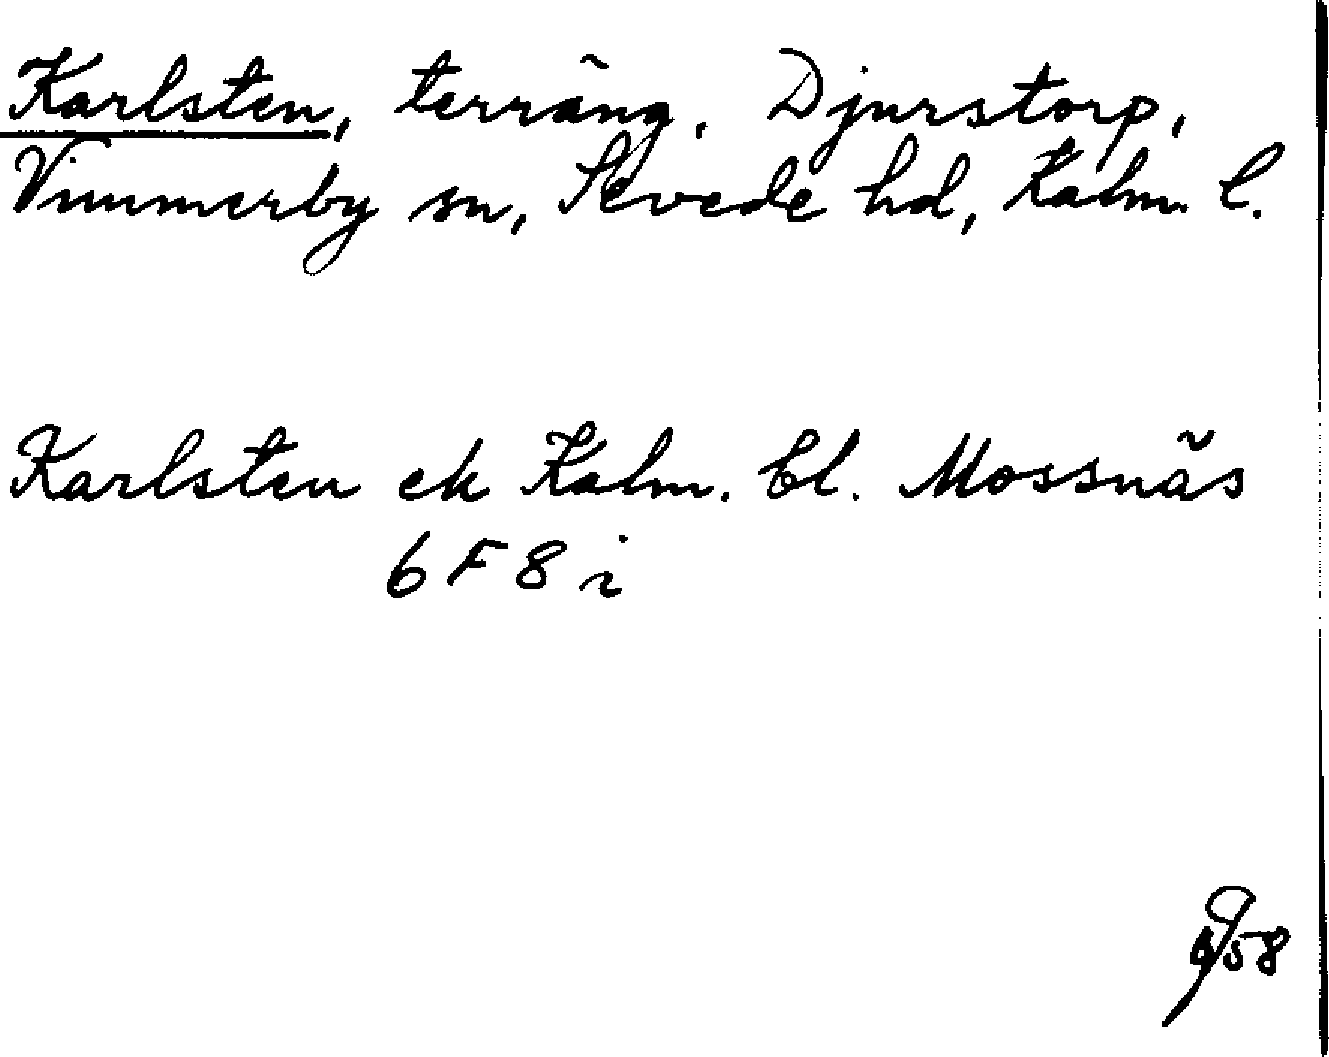 Karlsten, terräng, Djurstorp,
Vimmerby sn, Sevede hd, Kalm. l.
Karlsten ek Kalm. bl. Mossnäs
6 F 8 i
58